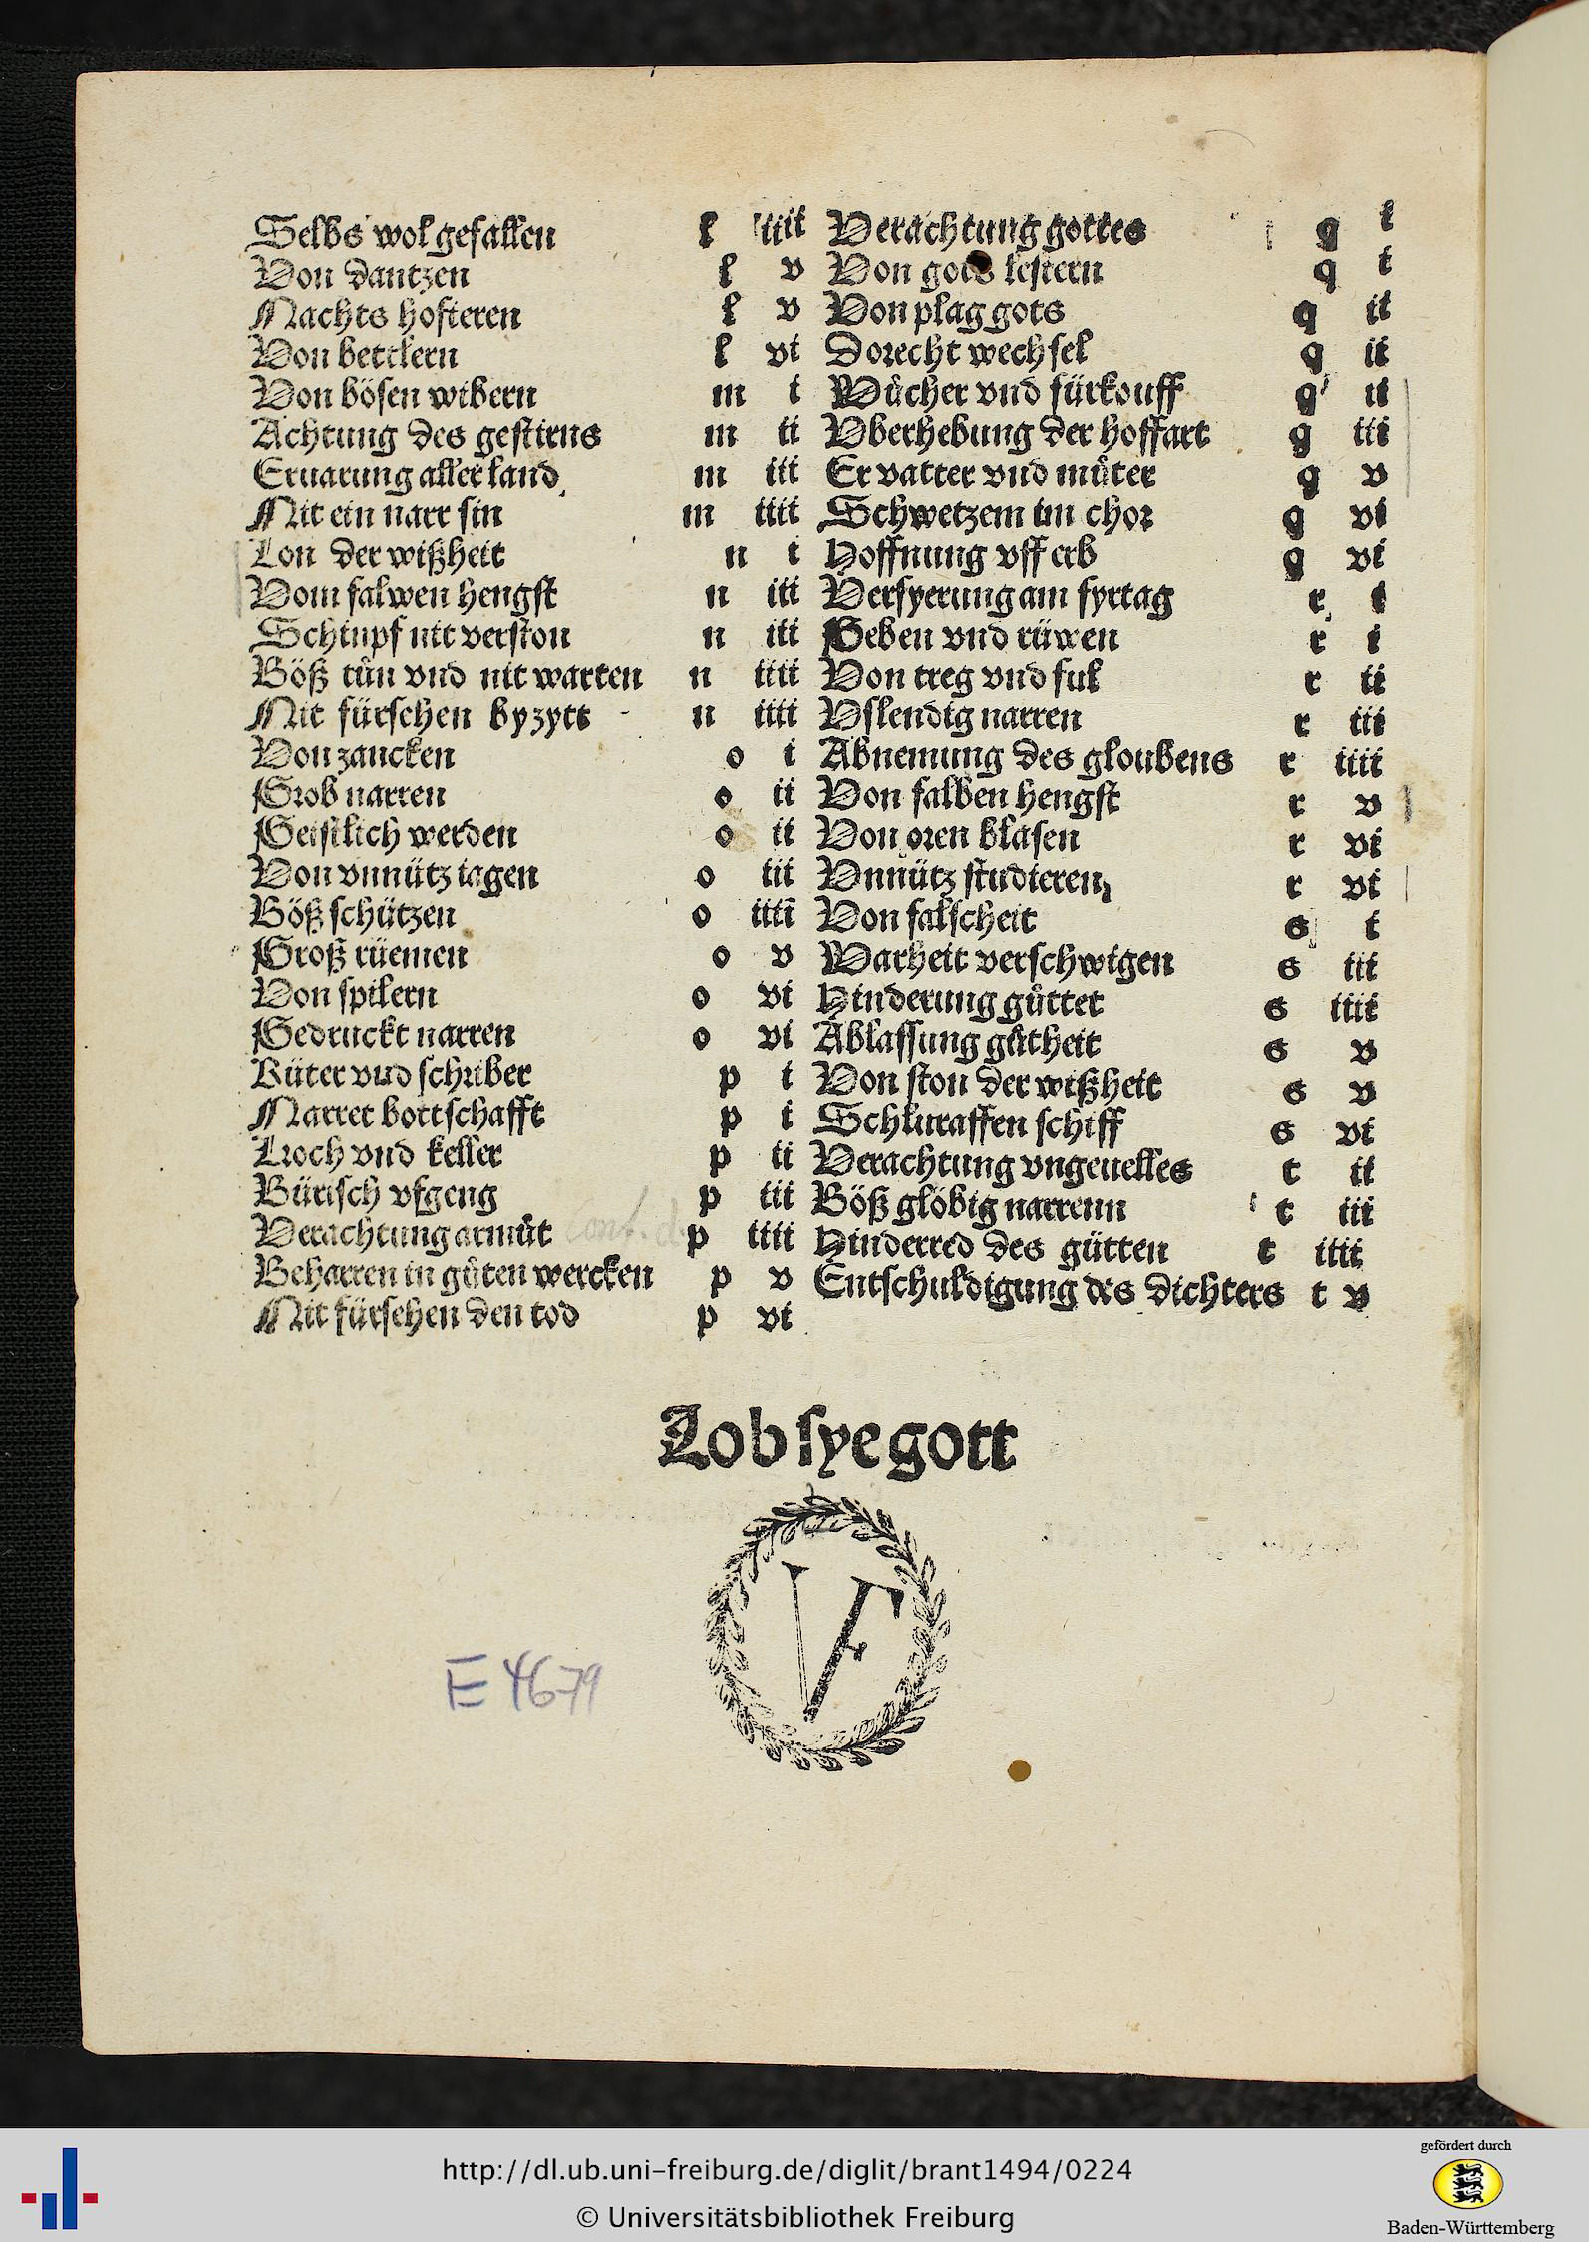 Selbs wol gefallen l iiii
Von dantzen l v
Nachts hofieren l v
Von bettlern l vi
Von bösen wibern m i
Achtung des gestirns m ii
Eruarung aller land m iii
Nit ein narr sin m iiii
Lon der wißheit n i
Vom falwen hengst n iii
Schimpf nit verston n iii
Böß tůn vnd nit warten n iiii
Nit fürschen byzytt n iiii
Von zancken o i
Grob narren o ii
Geistlich werden o ii
Von vnnütz iagen o iii
Böß schützen o iiii
Groß rüemen o v
Von spilern o vi
Gedruckt narren o vi
Rüter vnd schriber p i
Narret bottschafft p i
Kroch vnd keller p ii
Bürisch vfgeng p iii
Verachtung armůt p iiii
Beharren in gůten wercken p v
Nit fürsehen den tod p vi
Verachtung gottes q i
Von gots lestern q i
Von plag gots q ii
Dorecht wechsel q ii
Wůcher vnd fürkouff q ii
Vberhebung der hoffart q iii
Er vatter vnd můter q v
Schwetzem im chor q vi
Hoffnung vff erb q vi
Verfyerung am fyrtag r i
Geben vnd rüwen r i
Von treg vnd ful r ii
Vslendig narren r iii
Abnemung des gloubens r iiii
Von falben hengst r v
Von oren blasen r vi
Vnnütz studieren r vi
Von falscheit s i
Warheit verschwigen s iii
Hinderung gůttet s iiii
Ablassung gůtheit s v
Von ston der wißheit s v
Schluraffen schiff s vi
Verachtung vngeuelles t ii
Böß glöbig narrenn t iii
Hinderred des gütten t iiii
Entschuldigung des dichters t v
Lob sye gott
VF
E 4679
http://dl.ub.uni-freiburg.de/diglit/brant1494/0224
© Universitätsbibliothek Freiburg
gefördert durch
Baden-Württemberg